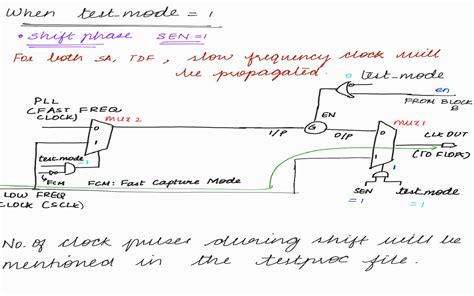 When test_mode = 1
• Shift phase SEN = 1
For both SA, TDF, slow frequency clock will
be propagated.
0 test_mode
en
FROM BLOCK B
PLL
(FAST FREQ
CLOCK)
mux2
0
1
EN
G
I/P
O/P
mux1
0
1
CLK OUT
(TO FLOPS)
test_mode
= 1
FCM
FCM: Fast Capture Mode
LOW FREQ
CLOCK (SCLK)
SEN
= 1
test_mode
= 1
No. of clock pulses during shift will be
mentioned in the testproc file.